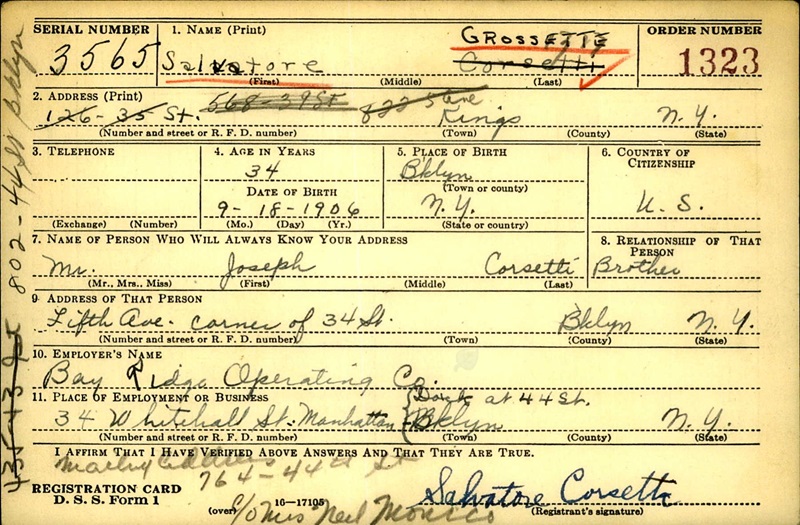 SERIAL NUMBER
3565
1. NAME (Print)
GROSSETTE
Salvatore Corsetti
(First) (Middle) (Last)
ORDER NUMBER
1323
2. ADDRESS (Print)
668-39 St 822 5 ave.
126-35 St. Kings N.Y.
(Number and street or R. F. D. number) (Town) (County) (State)
3. TELEPHONE
(Exchange) (Number)
4. AGE IN YEARS
34
DATE OF BIRTH
9-18-1906
(Mo.) (Day) (Yr.)
5. PLACE OF BIRTH
Bklyn
(Town or county)
N.Y.
(State or country)
6. COUNTRY OF
CITIZENSHIP
U. S.
7. NAME OF PERSON WHO WILL ALWAYS KNOW YOUR ADDRESS
Mr. Joseph Corsetti
(Mr., Mrs., Miss) (First) (Middle) (Last)
8. RELATIONSHIP OF THAT
PERSON
Brother
9. ADDRESS OF THAT PERSON
Fifth Ave. corner of 34 St. Bklyn N.Y.
(Number and street or R. F. D. number) (Town) (County) (State)
10. EMPLOYER'S NAME
Bay Ridge Operating Co.
11. PLACE OF EMPLOYMENT OR BUSINESS
Dock at 44 St.
34 Whitehall St. Manhattan Bklyn N.Y.
(Number and street or R. F. D. number) (Town) (County) (State)
I AFFIRM THAT I HAVE VERIFIED ABOVE ANSWERS AND THAT THEY ARE TRUE.
764-44th St
REGISTRATION CARD
D. S. S. Form 1
(over)
16-17105
c/o Mrs Neil Monico
Salvatore Corsetti
(Registrant's signature)
802-44 St Bklyn
435-43 St